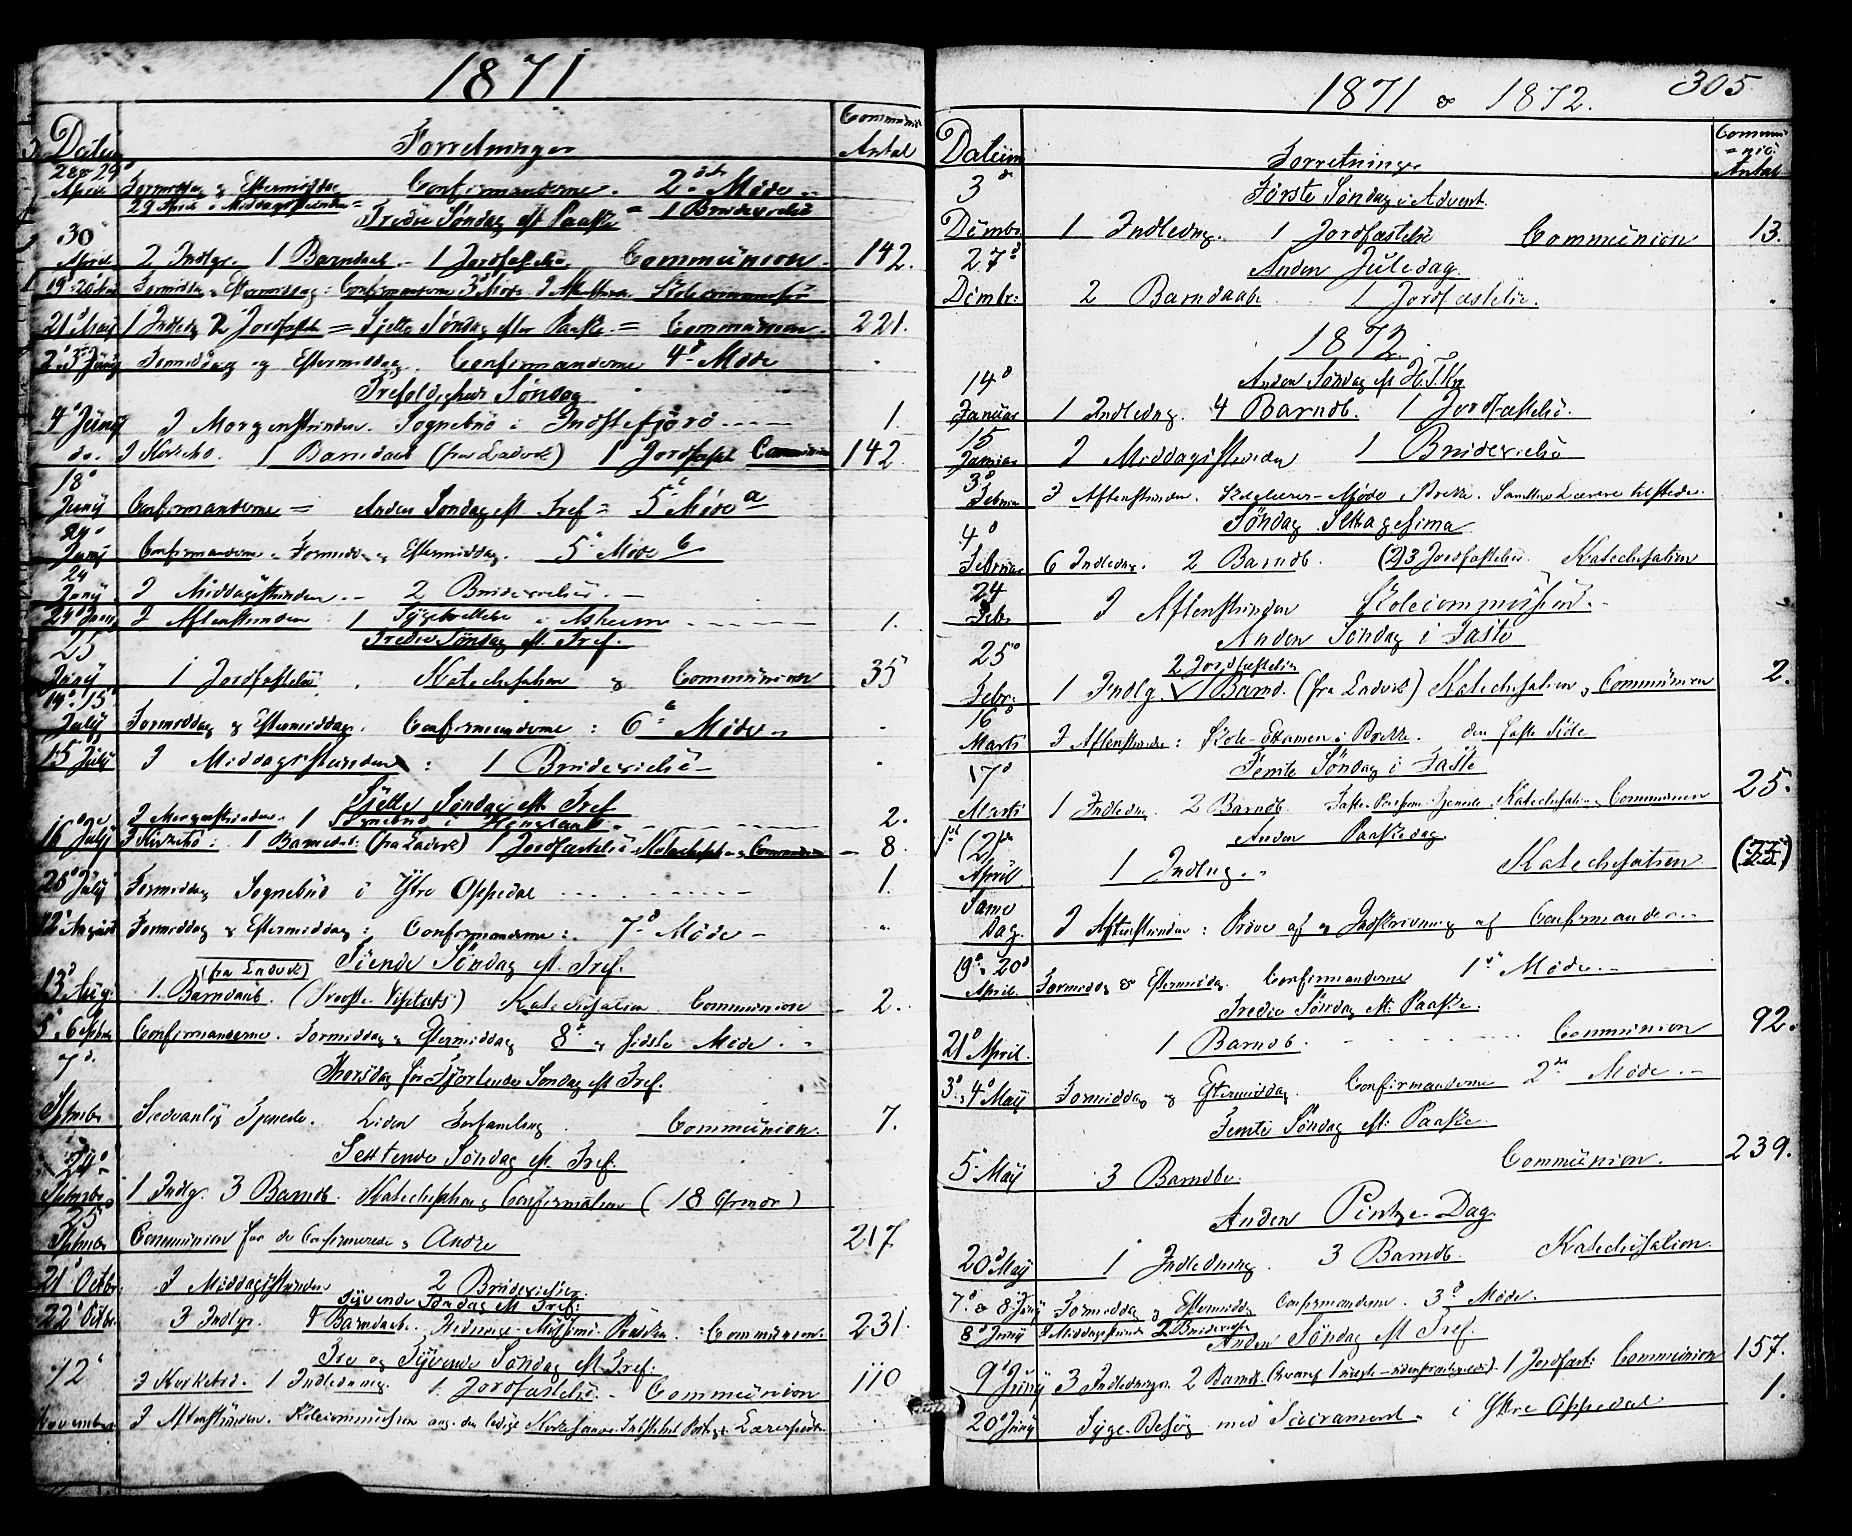 1871
Datum
Forretninger
Communic
Antal
28 & 29
April Formiddag & Eftermiddag Confirmanderne. 2den Møde
29 April i Middagsstunden = 1 Brudevielse
Tredie Søndag eft Paaske
30
April 2 Indlgr. 1 Barndaab. 1 Jordfæstelse Communion 142.
19 & 20 May Formiddag & Eftermiddag: Confirmanderne 3d Møde
21 May 1 Indledg 2 Jordfæst = Sjette Søndag efter Paaske = Communion 221.
2 & 3 Juny Formiddag og Eftermiddag. Confirmanderne 4d Møde
Trefoldigheds Søndag
4 Juny I Morgenstunden. Sognebud i Indstefjord 1.
do. I Kirken 1 Barndaab (fra Ladvik) 1 Jordfæst Communion 142
18
Juny Confirmanderne = Anden Søndag eft Tref = 5te Møde a
Juny Confirmanderne Formidd & Eftermiddag. 5 Møde b
24
Juny I Middagsstunden 2 Brudevielser.
24 Juny I Aftenstunden: 1 Sygeberettelse i Asheim 1.
Tredie Søndag eft. Tref.
25
Juny 1 Jordfæstelse. Katechisation & Communion 35
14 & 15
July Formiddag & Eftermiddag. Confirmanderne: 6te Møde
15 July I Middagsstunden: 1 Brudevielse
Sjette Søndag eft Tref
I Morgenstunden. 1 Sognebud i 2.
16 July I Kirken: 1 Barnedaab (fra Ladvik) 1 Jordfæstelse Katechisation & Communion 8
July Formiddag Sognebud i Ytre Oppedal 1.
12 August Formiddag & Eftermiddag: Confirmanderne: 7d Møde
(fra Ladvik) Tiende Søndag eft. Tref.
13 Aug. 1 Barndaab. (Provste Visitats) Katechisation Communion 2.
5 & 6 Septbr Confirmanderne. Formiddag & Eftermiddag 8 & sidste Møde.
7d.
Thorsdag før Fjortende Søndag eft Tref.
Septmbr Sædvanlig Tjeneste. Liden Forsamling. Communion. 7.
Sextende Søndag eft. Tref.
24
Septmbr 1 Indlgr. 3 Barndb. Katechisation & Confirmation (18
25
Septmbr Communion for de Confirmerede & Andre 217
21 Octbr I Middagsstunden 2 Brudevielser.
Tyvende Søndag eft Tref:
22 Octbr. 3 Indlgr. Barndaab. Communion. 231.
Tre og Tyvende Søndag eft Tref.
12 I Kirken. 1 Indledning. 1 Jordfæstelse. Communion 110
November I Aftenstunden. Skolecommission ang. den ledige
305
1871 & 1872.
Datum
Forretninger
Communi
= nic.
Antal
3d
Første Søndag i Advent.
Dembr 1 Indledng. 1 Jordfæstelse Communion 13.
27d
Anden Juledag.
Dembr: 2 Barndaab. 1 Jordfæstelse.
1872
14
Anden Søndag eft H.T.Kg
Januar 1 Indledng. 4 Barndb. 1 Jordfæstelse.
15
Januar I Middagsstunden 1 Brudevielse
3d
Februar I Aftenstunden. Skolelærer-Møde i Brekke. Samtlige Lærere tilstede.
Søndag Sexagesima
4
Februar 6 Indledng. 2 Barndb. (2) 3 Jordfæstelser Katechisation
24
Feb. I Aftenstunden Skolecommission.
Anden Søndag i Faste
25
2 Jordfæstelse
Febr: 1 Indlg Barnd. (fra Ladvik) Katechisation & Communion 2.
16
Marts I Aftenstunden: Skole-Examen i Brekke. den faste Side
17
Femte Søndag i Faste
Marts 1 Indledng 2 Barndb. Katechisation & Communion 25.
(2den
Anden Paaskedag
April 1 Indlng. Katechisation (77)
Same
Dag. I Aftenstunden: Prøve af og Indskrivning af Confirmander
19 & 20
April. Formiddag & Eftermiddag Confirmanderne 1ste Møde
Tredie Søndag eft: Paaske.
21 April. 1 Barndb. Communion 92.
3 & 4 May Formiddag og Eftermiddag. Confirmanderne 2den Møde
Femte Søndag eft: Paaske.
5 May 3 Barndbe. Communion. 239.
Anden Pintse-Dag
20 May 1 Indledning. 3 Barndb. Katechisation.
7 & 8 Juny Formiddag og Eftermiddg Confirmanderne. 3d Møde.
8 Juny I Middagsstunden 2 Brudevielser
Anden Søndag eft Tref.
9 Juny 3 Indledninger 2 Barndb. 1 Jordfæst: Communion 157.
20 Juny Syge-Besøg med Sacrament i Yttre Oppedal 1.